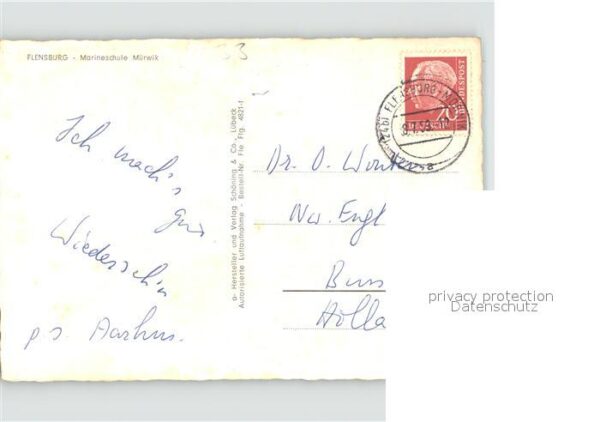 FLENSBURG - Marineschule Mürwik
33
Ich mach's
gut
Wiedersehn
p.s. Aarhus.
a- Hersteller und Verlag Schöning & Co., Lübeck
Autorisierte Luftaufnahme - Bestell-Nr. Fle Flg. 4821-f
BUNDESPOST
20
(24b) FLENSBURG-MÜRWIK
a
Dr. O. Wint
Nw. Engl
Bus
Holla
privacy protection
Datenschutz